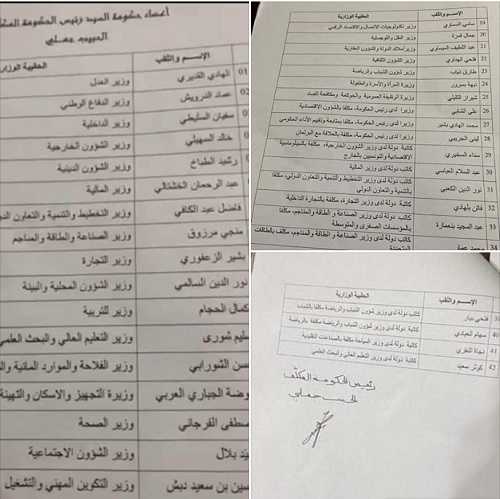 أعضاء حكومة السيد رئيس الحكومة
الحبيب جملي
الإسم واللقب الحقيبة الوزارية
01 الهادي القديري وزير العدل
02 عماد الدرويش وزير الدفاع الوطني
سفيان السليطي وزير الداخلية
خالد السهيلي وزير الشؤون الخارجية
رشيد الطباخ وزير الشؤون الدينية
عبد الرحمان الخشتالي وزير المالية
فاضل عبد الكافي وزير التخطيط والتنمية والتعاون
منجي مرزوق وزير الصناعة والطاقة والمناجم
بشير الزعفوري وزير التجارة
نور الدين السالمي وزير الشؤون المحلية والبيئة
كمال الحجام وزير للتربية
سليم شورى وزير التعليم العالي والبحث العلمي
الشورابي وزير الفلاحة والموارد المائية
الجباري العربي وزيرة التجهيز والاسكان والتهيئة
الفرجاني وزير الصحة
بلال وزير الشؤون الاجتماعية
بن سعيد دبش وزير التكوين المهني والتشغيل
الإسم واللقب الحقيبة الوزارية
19 سامي السماوي وزير تكنولوجيات الاتصال والاقتصاد الرقمي
20 جمال قمرة وزير النقل واللوجستية
21 عبد اللطيف الميساوي وزير أملاك الدولة والشؤون العقارية
22 فتحي الهداوي وزير الشؤون الثقافية
23 طارق ذياب وزير شؤون الشباب والرياضة
24 ديهة بسرور وزيرة المرأة والأسرة والطفولة
25 شيراز التليلي وزيرة الوظيفة العمومية والحوكمة ومكافحة الفساد
26 علي الشابي وزيرا لدى رئيس الحكومة، مكلفا بالشؤون الاقتصادية
27 محمد الهادي بشير وزيرا لدى رئيس الحكومة، مكلفا بمتابعة وتقييم الأداء الحكومي
28 لبنى الجريبي وزيرة لدى رئيس الحكومة، مكلفة بالعلاقة مع البرلمان
29 سناء السغيري كاتبة دولة لدى وزير الشؤون الخارجية، مكلفة بالدبلوماسية
الاقتصادية والتونسيين بالخارج
30 عبد السلام العباسي كاتب دولة لدى وزير المالية
31 نور الدين الكعبي كاتب دولة لدى وزير التخطيط والتنمية والتعاون الدولي، مكلفا
بالتنمية والتعاون الدولي
32 فاتن بلهادي كاتبة دولة لدى وزير التجارة، مكلفة بالتجارة الداخلية
33 عبد المجيد بنعمارة كاتب دولة لدى وزير الصناعة و الطاقة والمناجم، مكلفا
بالمؤسسات الصغرى والمتوسطة
34 محمد كاتب دولة لدى وزير الصناعة و الطاقة والمناجم، مكلف بالطاقات
المتجددة
الإسم واللقب الحقيبة الوزارية
فتحي كاتب دولة لدى وزير شؤون الشباب والرياضة مكلفا بالشباب
40 سهام العيادي كاتبة دولة لدى وزير شؤون الشباب والرياضة مكلفة بالرياضة
41 نجاة كاتبة دولة لدى وزير السياحة مكلفة بالصناعات التقليدية
42 كوثر سعيد كاتبة دولة لدى وزير التعليم العالي والبحث العلمي
رئيس الحكومة المكلف
الحبيب جملي